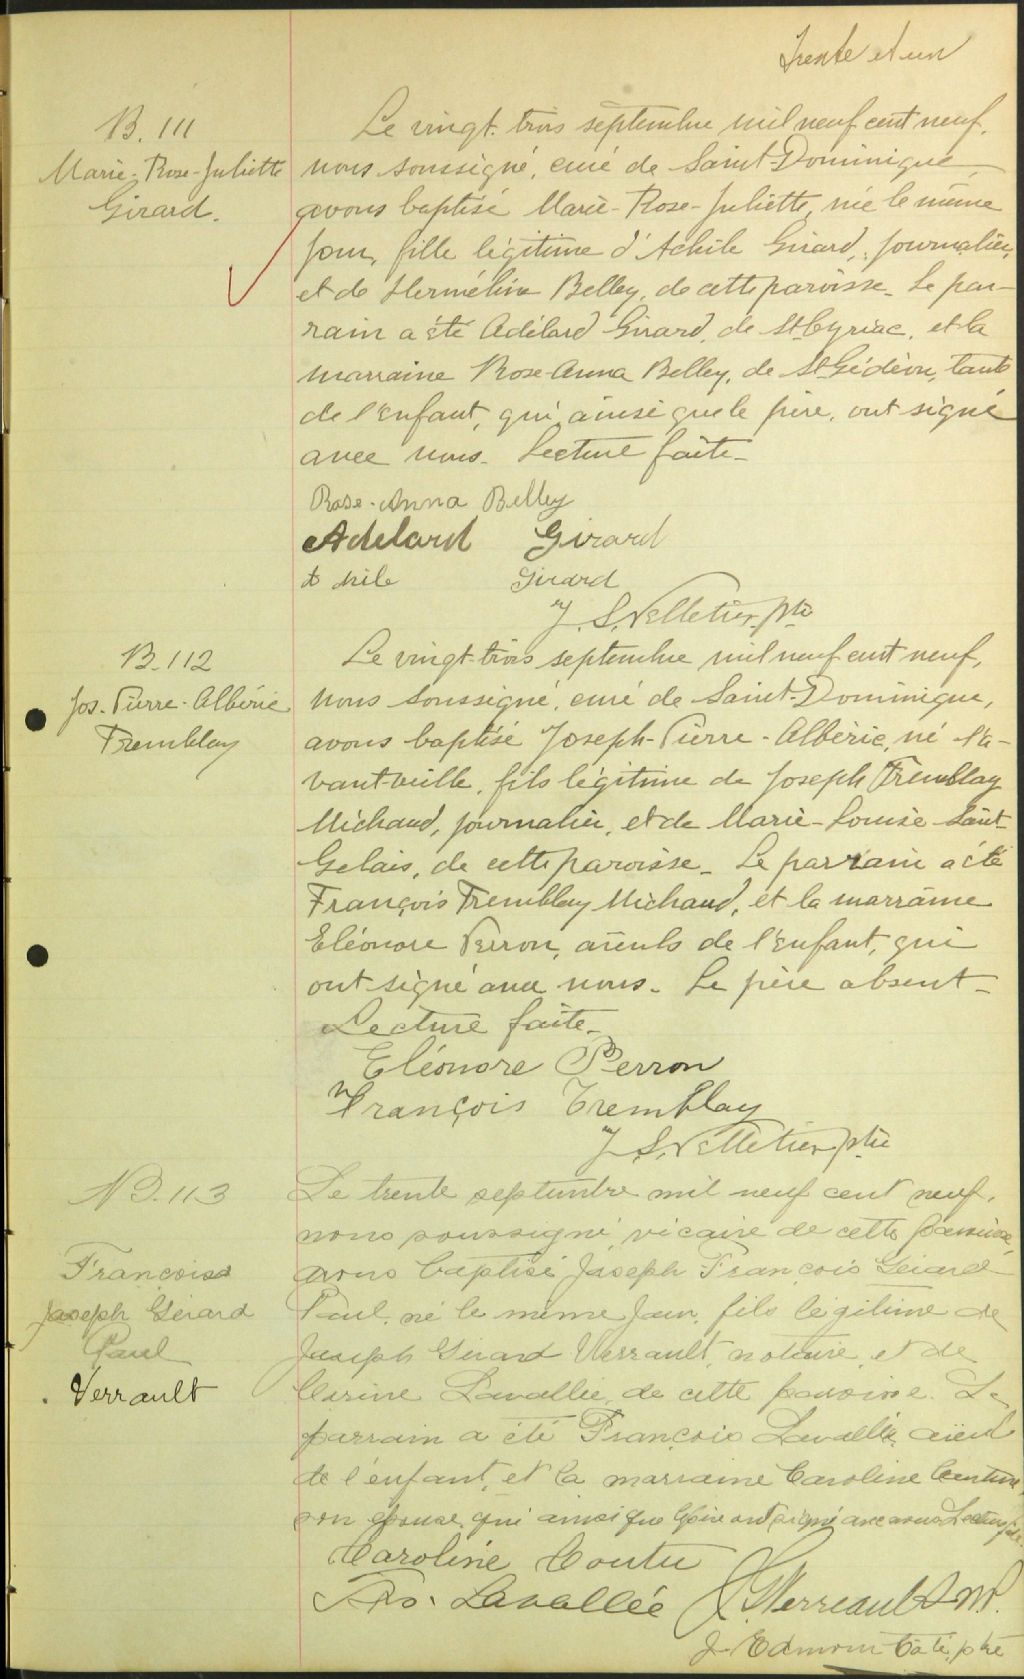 Trente et un
B. 111
Marie-Rose-Juliette
Girard.
Le vingt-trois septembre mil neuf cent neuf,
nous soussigné, curé de Saint-Dominique
avons baptisé Marie-Rose-Juliette, née le même
jour, fille légitime d'Achile Girard, journalier,
et de Herméline Belley, de cette paroisse. Le par-
rain a été Adélard Girard, de St Cyriac, et la
marraine Rose-Anna Belley, de St Gédéon, tante
de l'enfant, qui, ainsi que le père, ont signé
avec nous. Lecture faite.
Rose-Anna Belley
Adelard Girard
Achile Girard
J. S. Pelletier, ptre
B. 112
Jos.-Pierre-Albéric
Tremblay
Le vingt-trois septembre mil neuf cent neuf,
nous soussigné, curé de Saint-Dominique,
avons baptisé Joseph-Pierre-Albéric, né l'a-
vant-veille, fils légitime de Joseph Tremblay
Michaud, journalier, et de Marie-Louise Saint-
Gelais, de cette paroisse. Le parrain a été
François Tremblay Michaud, et la marraine
Eléonore Perron, aïeuls de l'enfant, qui
ont signé avec nous. Le père absent.
Lecture faite.
Eléonore Perron
François Tremblay
J. S. Pelletier, ptre
B. 113
François
Joseph Gérard
Paul
Verrault
Le trente septembre mil neuf cent neuf,
nous soussigné vicaire de cette paroisse,
avons baptisé Joseph François Gérard
Paul, né le même jour, fils légitime de
Joseph Gérard Verrault, notaire, et de
Lavallée, de cette paroisse. Le
parrain a été François Lavallée aïeul
de l'enfant, et la marraine Caroline
son épouse, qui ainsi que le père ont signé avec nous. Lecture faite.
Caroline Coutu
Frs. Lavallée J. G. Verreault N.P.
J. Edmond Côté, ptre